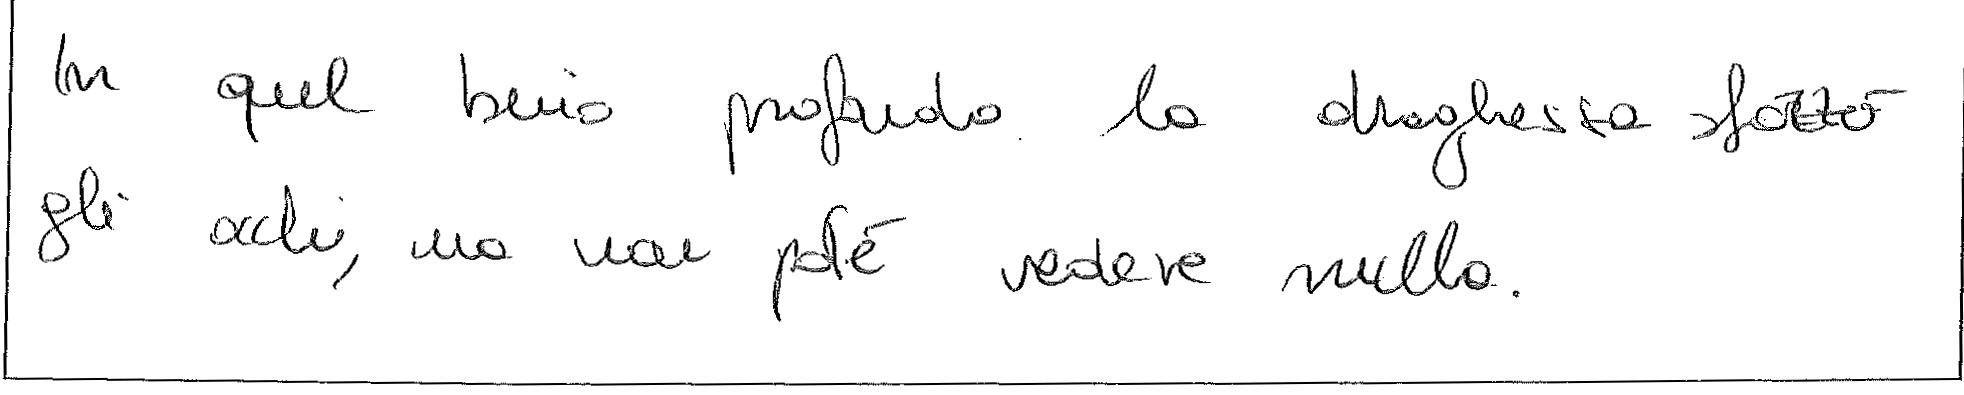 In quel buio profondo la draghessa sforzò
gli occhi, ma non poté vedere nulla.